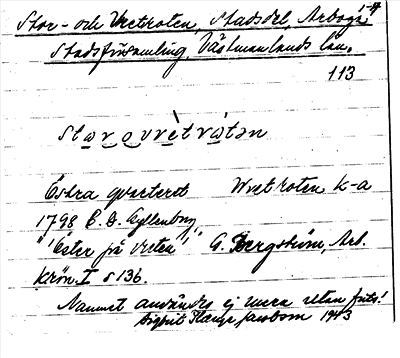 Stor- och Vretroten, Stadsdel, Arboga
Stadsförsamling, Västmanlands län.
113
Östra qvarteret Wret roten K-a
1798 C. G. Gyllenborg,
"Öster på vreten", G. Bergström, Arb.
Krön. I s 136.
Namnet användes ej mera utan förr!
1943